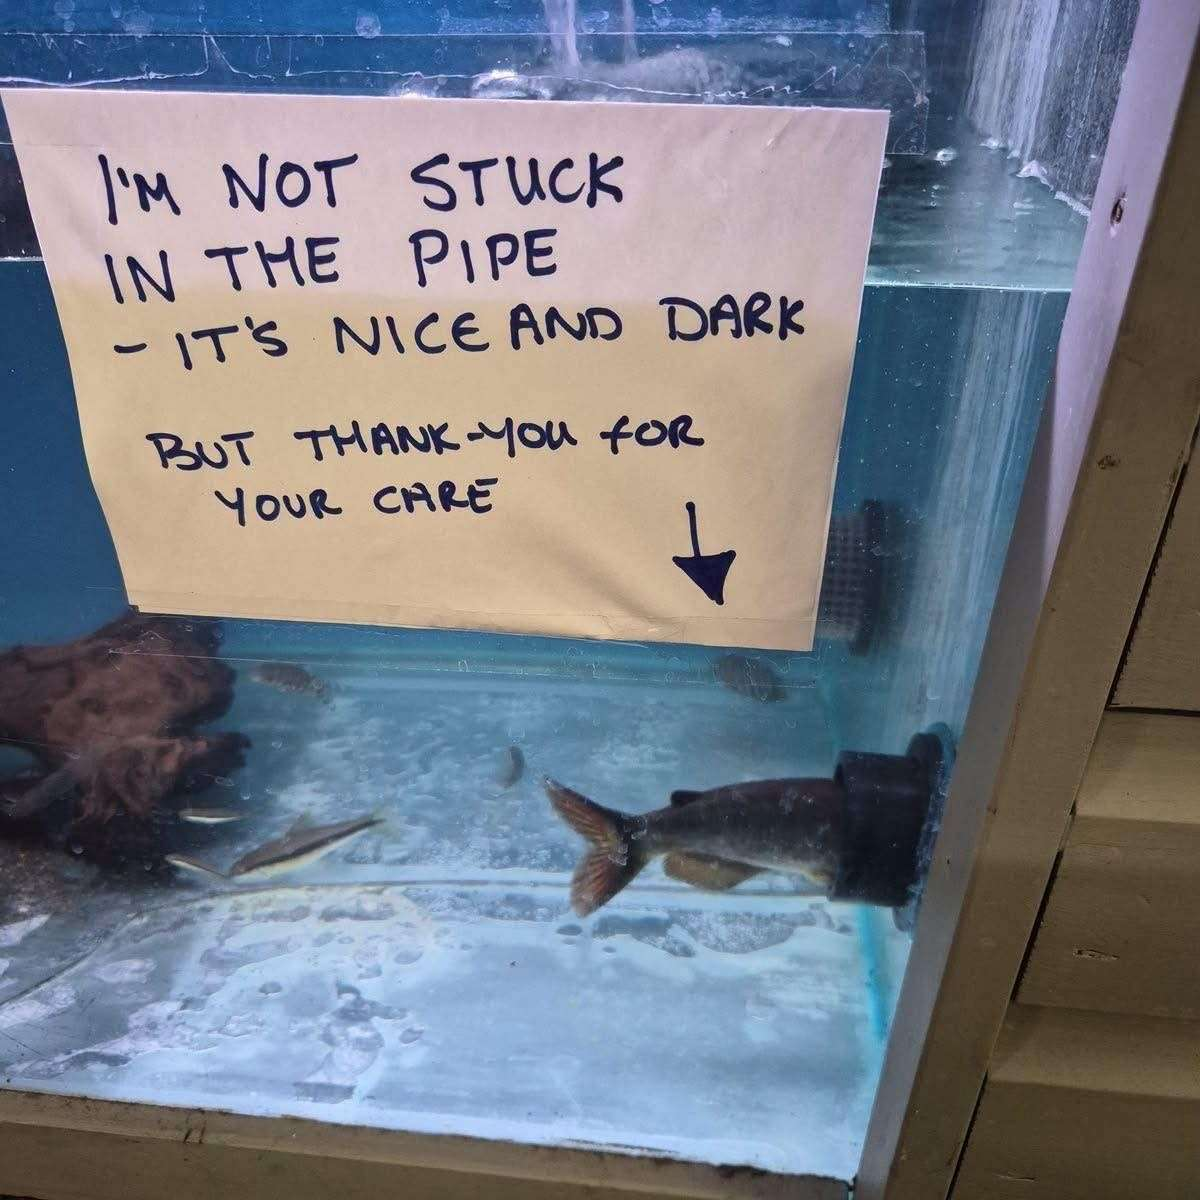 I'M NOT STUCK
IN THE PIPE
- IT'S NICE AND DARK
BUT THANK-YOU FOR
YOUR CARE